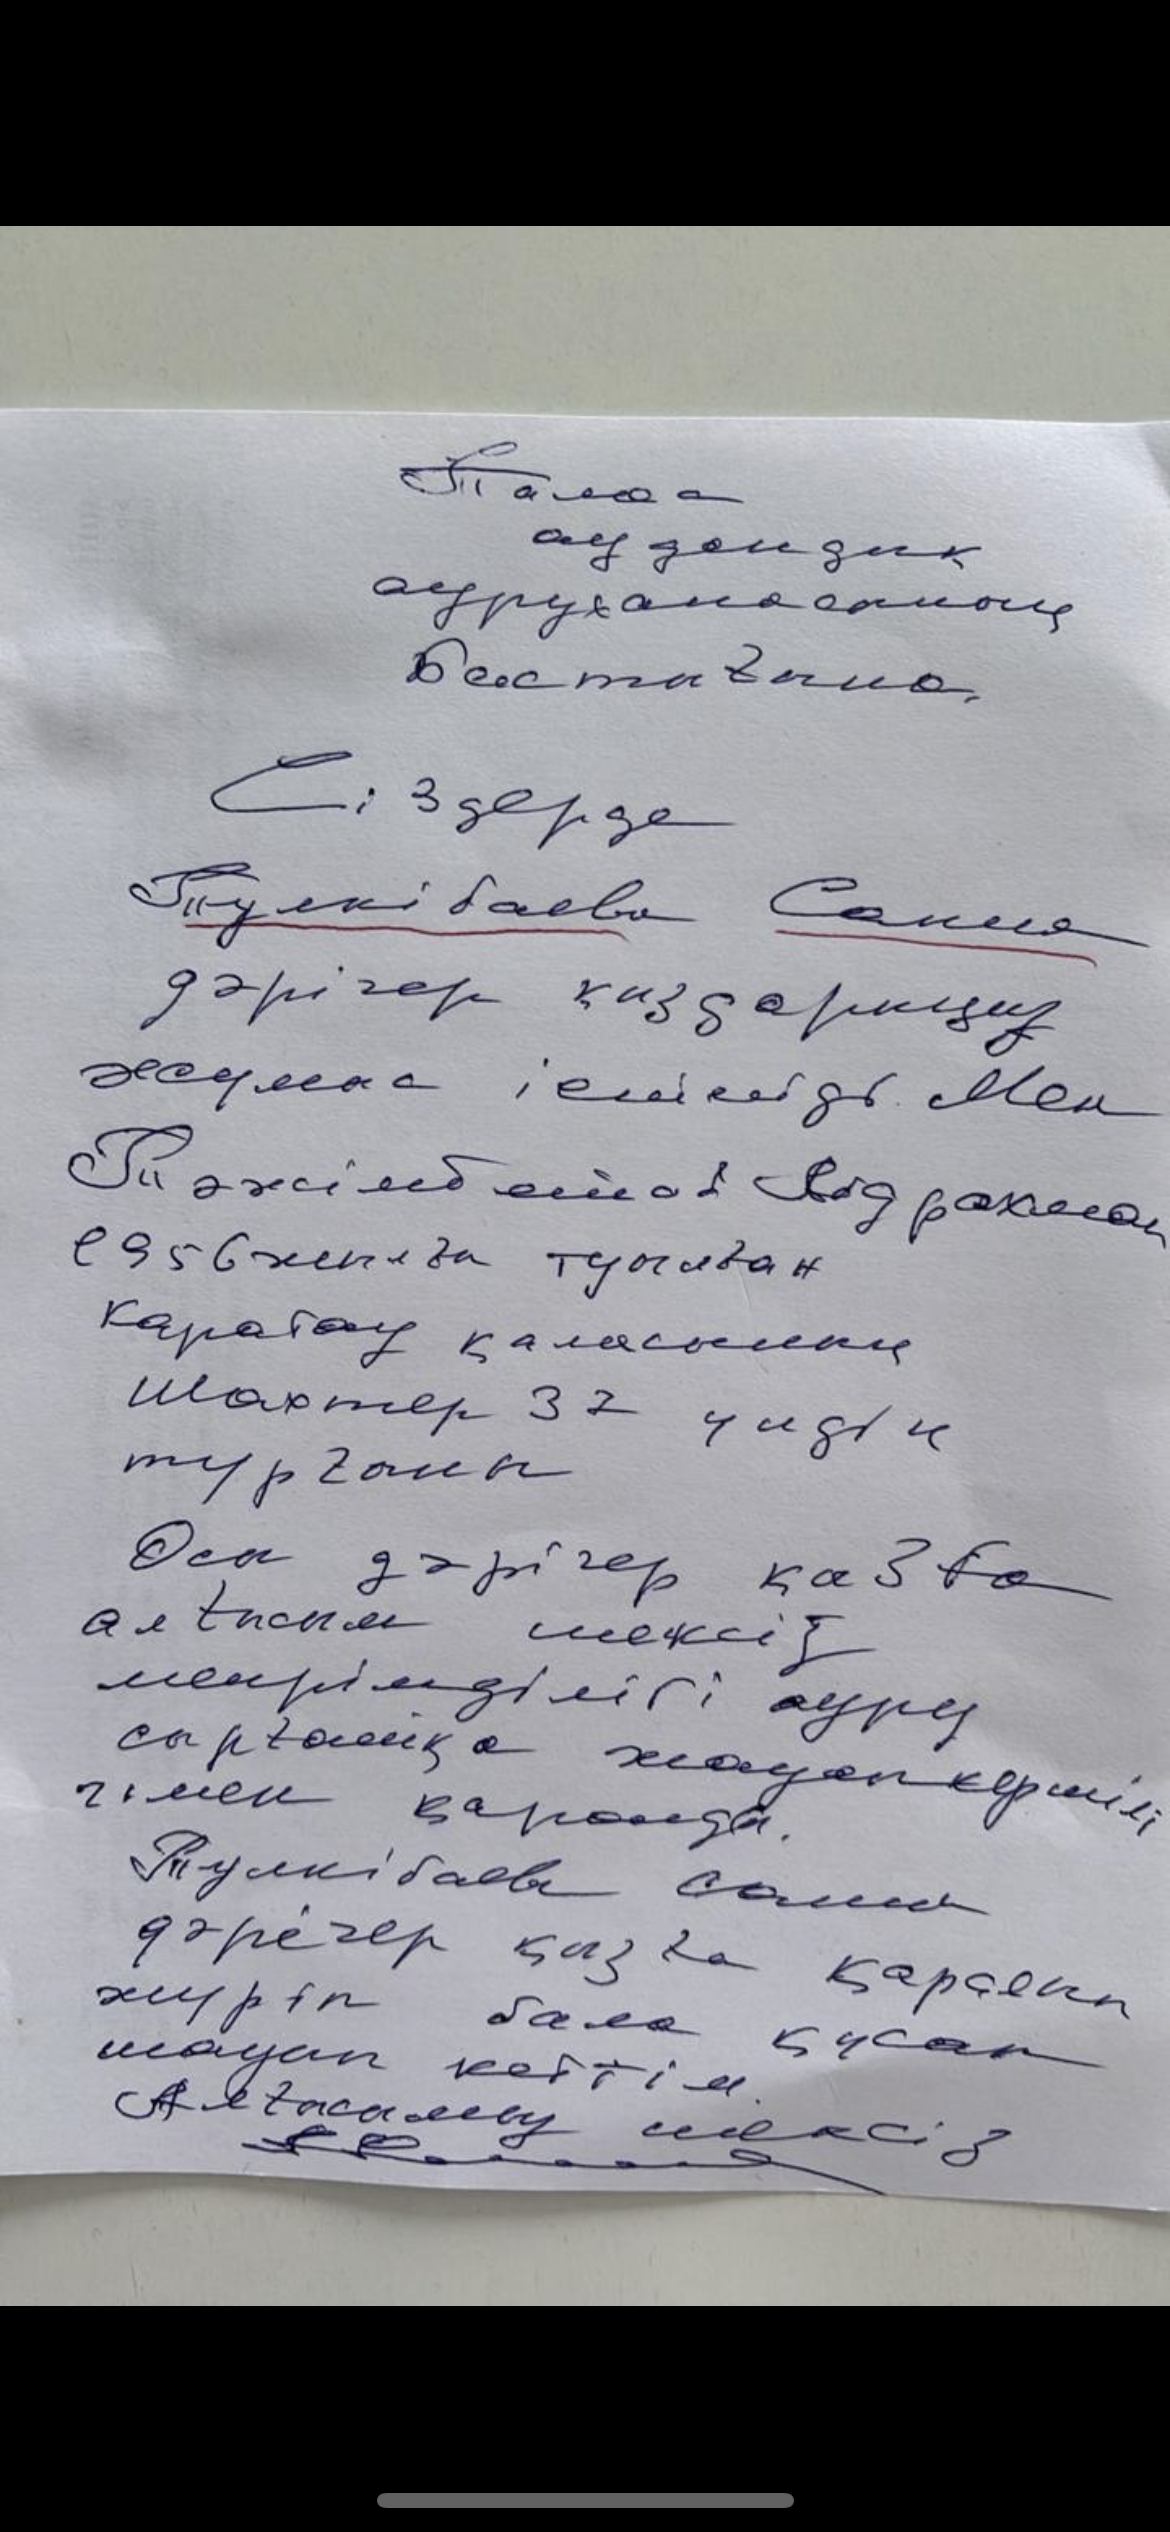 Талас
аудандық
аурухансының
бастығына.
Сіздерде
Түлкібаева Сания
дәрігер қыздарыңыз
жұмыс істейді. Мен
Тәжімбетов Абдрахман
1956 жылға туылған
Қаратау қаласының
Шахтер 37 үйдің
тұрғыны
Осы дәрігер қызға
алғысым шексіз
мейрімділігі ауру
сырқатқа жауапкершілі
гімен қарайды.
Түлкібаева Сания
дәрігер қызға қаралып
жүріп бала құсап
кеттім.
Алғысымыз шексіз